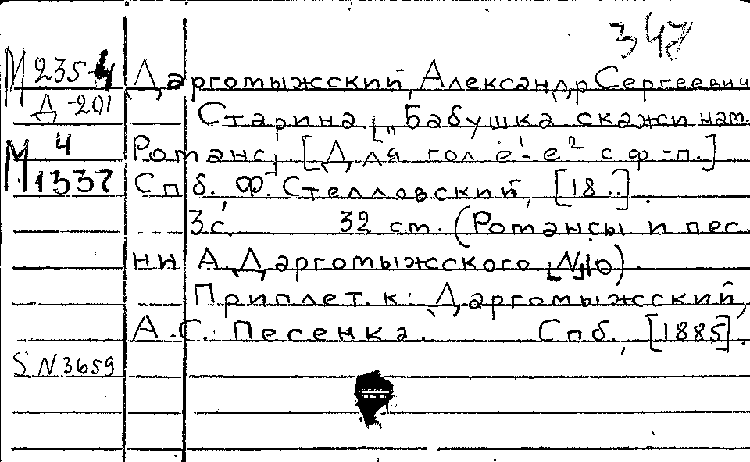 347
М 235-4 Даргомыжский, Александр Сергеевич
Д-201 Старина. [„Бабушка скажи нам.
М 4 Романс] [Для гол. e¹-e² с ф-п.]
1337 Спб. Ф. Стелловский, [18..].
3с. 32 см. (Романсы и пес
ни А. Даргомыжского [№]10).
Приплет. к: Даргомыжский,
А.С. Песенка. Спб., [1885].
S N 3659